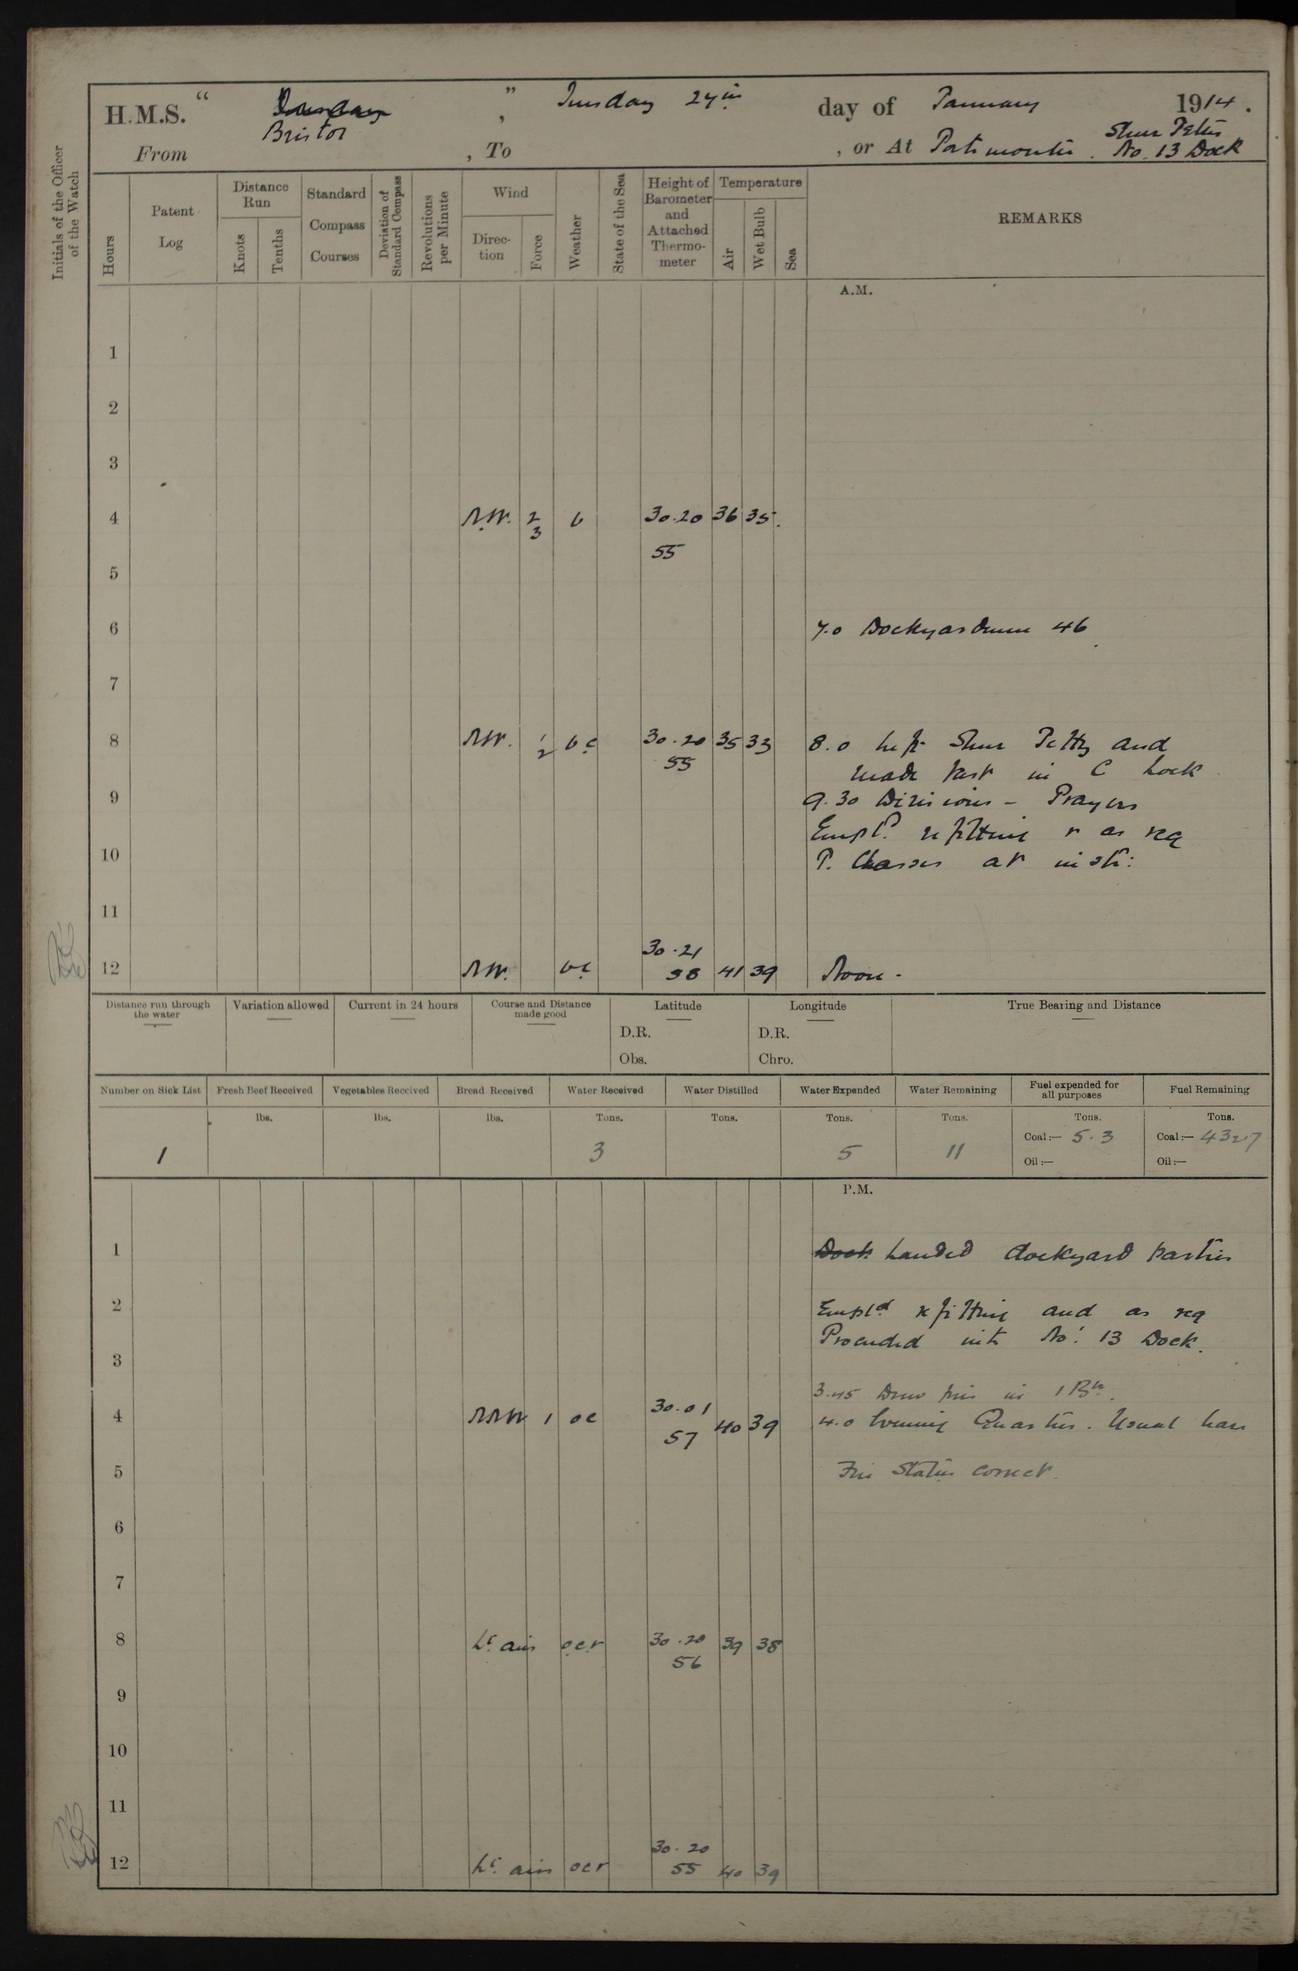 H.M.S. “ Bristol ”, Tuesday 27th day of January 1914.
From , To , or At Portsmouth. Sheer Jetty No. 13 Dock
Initials of the Officer of the Watch
Hours
Patent Log
Distance Run
Knots
Tenths
Standard Compass Courses
Deviation of Standard Compass
Revolutions per Minute
Wind
Direction
Force
Weather
State of the Sea
Height of Barometer and Attached Thermometer
Temperature
Air
Wet Bulb
Sea
REMARKS
A.M.
1
2
3
4 N.W. 2 3 b 30.20 55 36 35
5
6
7.0 Dockyardmen 46
7
8 NW. 1 2 bc 30.20 55 35 33 8.0 Left Sheer Jetty and
made fast in C Lock
9
9.30 Divisions - Prayers
Empld. refitting & as req
10
P. Classes at instr:
11
12 NW. bc 30.21 58 41 39 Noon -
Distance run through the water
Variation allowed
Current in 24 hours
Course and Distance made good
Latitude
D.R.
Obs.
Longitude
D.R.
Chro.
True Bearing and Distance
Number on Sick List
Fresh Beef Received
Vegetables Received
Bread Received
Water Received
Water Distilled
Water Expended
Water Remaining
Fuel expended for all purposes
Fuel Remaining
lbs. lbs. lbs. Tons. Tons. Tons. Tons. Tons. Tons.
1 3 5 11 Coal:— 5.3 Coal:— 4327
Oil:— Oil:—
P.M.
1 Dock Landed dockyard parties
2 Empld refitting and as req
Proceeded into No: 13 Dock.
3
3.45 Drew fires in 1 Br.
4 NNW 1 oc 30.01 57 40 39 4.0 Evening Quarters. Usual leave
5 Fire Stations correct.
6
7
8 Lt. airs ocr 30.20 56 39 38
9
10
11
12 Lt. airs ocr 30.20 55 40 39